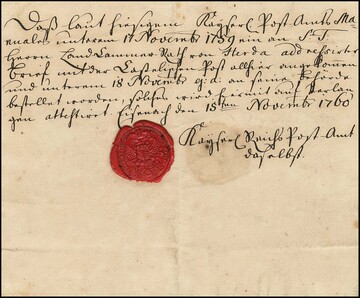 Daß laut hiesigem Kayserl. Post-Amts Ma-
nualis unterem 17 Novembr 1759 ein an S. T.
Herrn Land Cammer-Rath von Herda addressirter
brief mit der Casselischen Post allhier angekommen
und unterem 18 Novembr. a. d. an seine Behörde
bestellet worden, solches wird hiermit auf Verlan-
gen attestiret Eisenach den 18ten Novembr 1760
Kayserl. Reichs Post-Amt
daselbst.